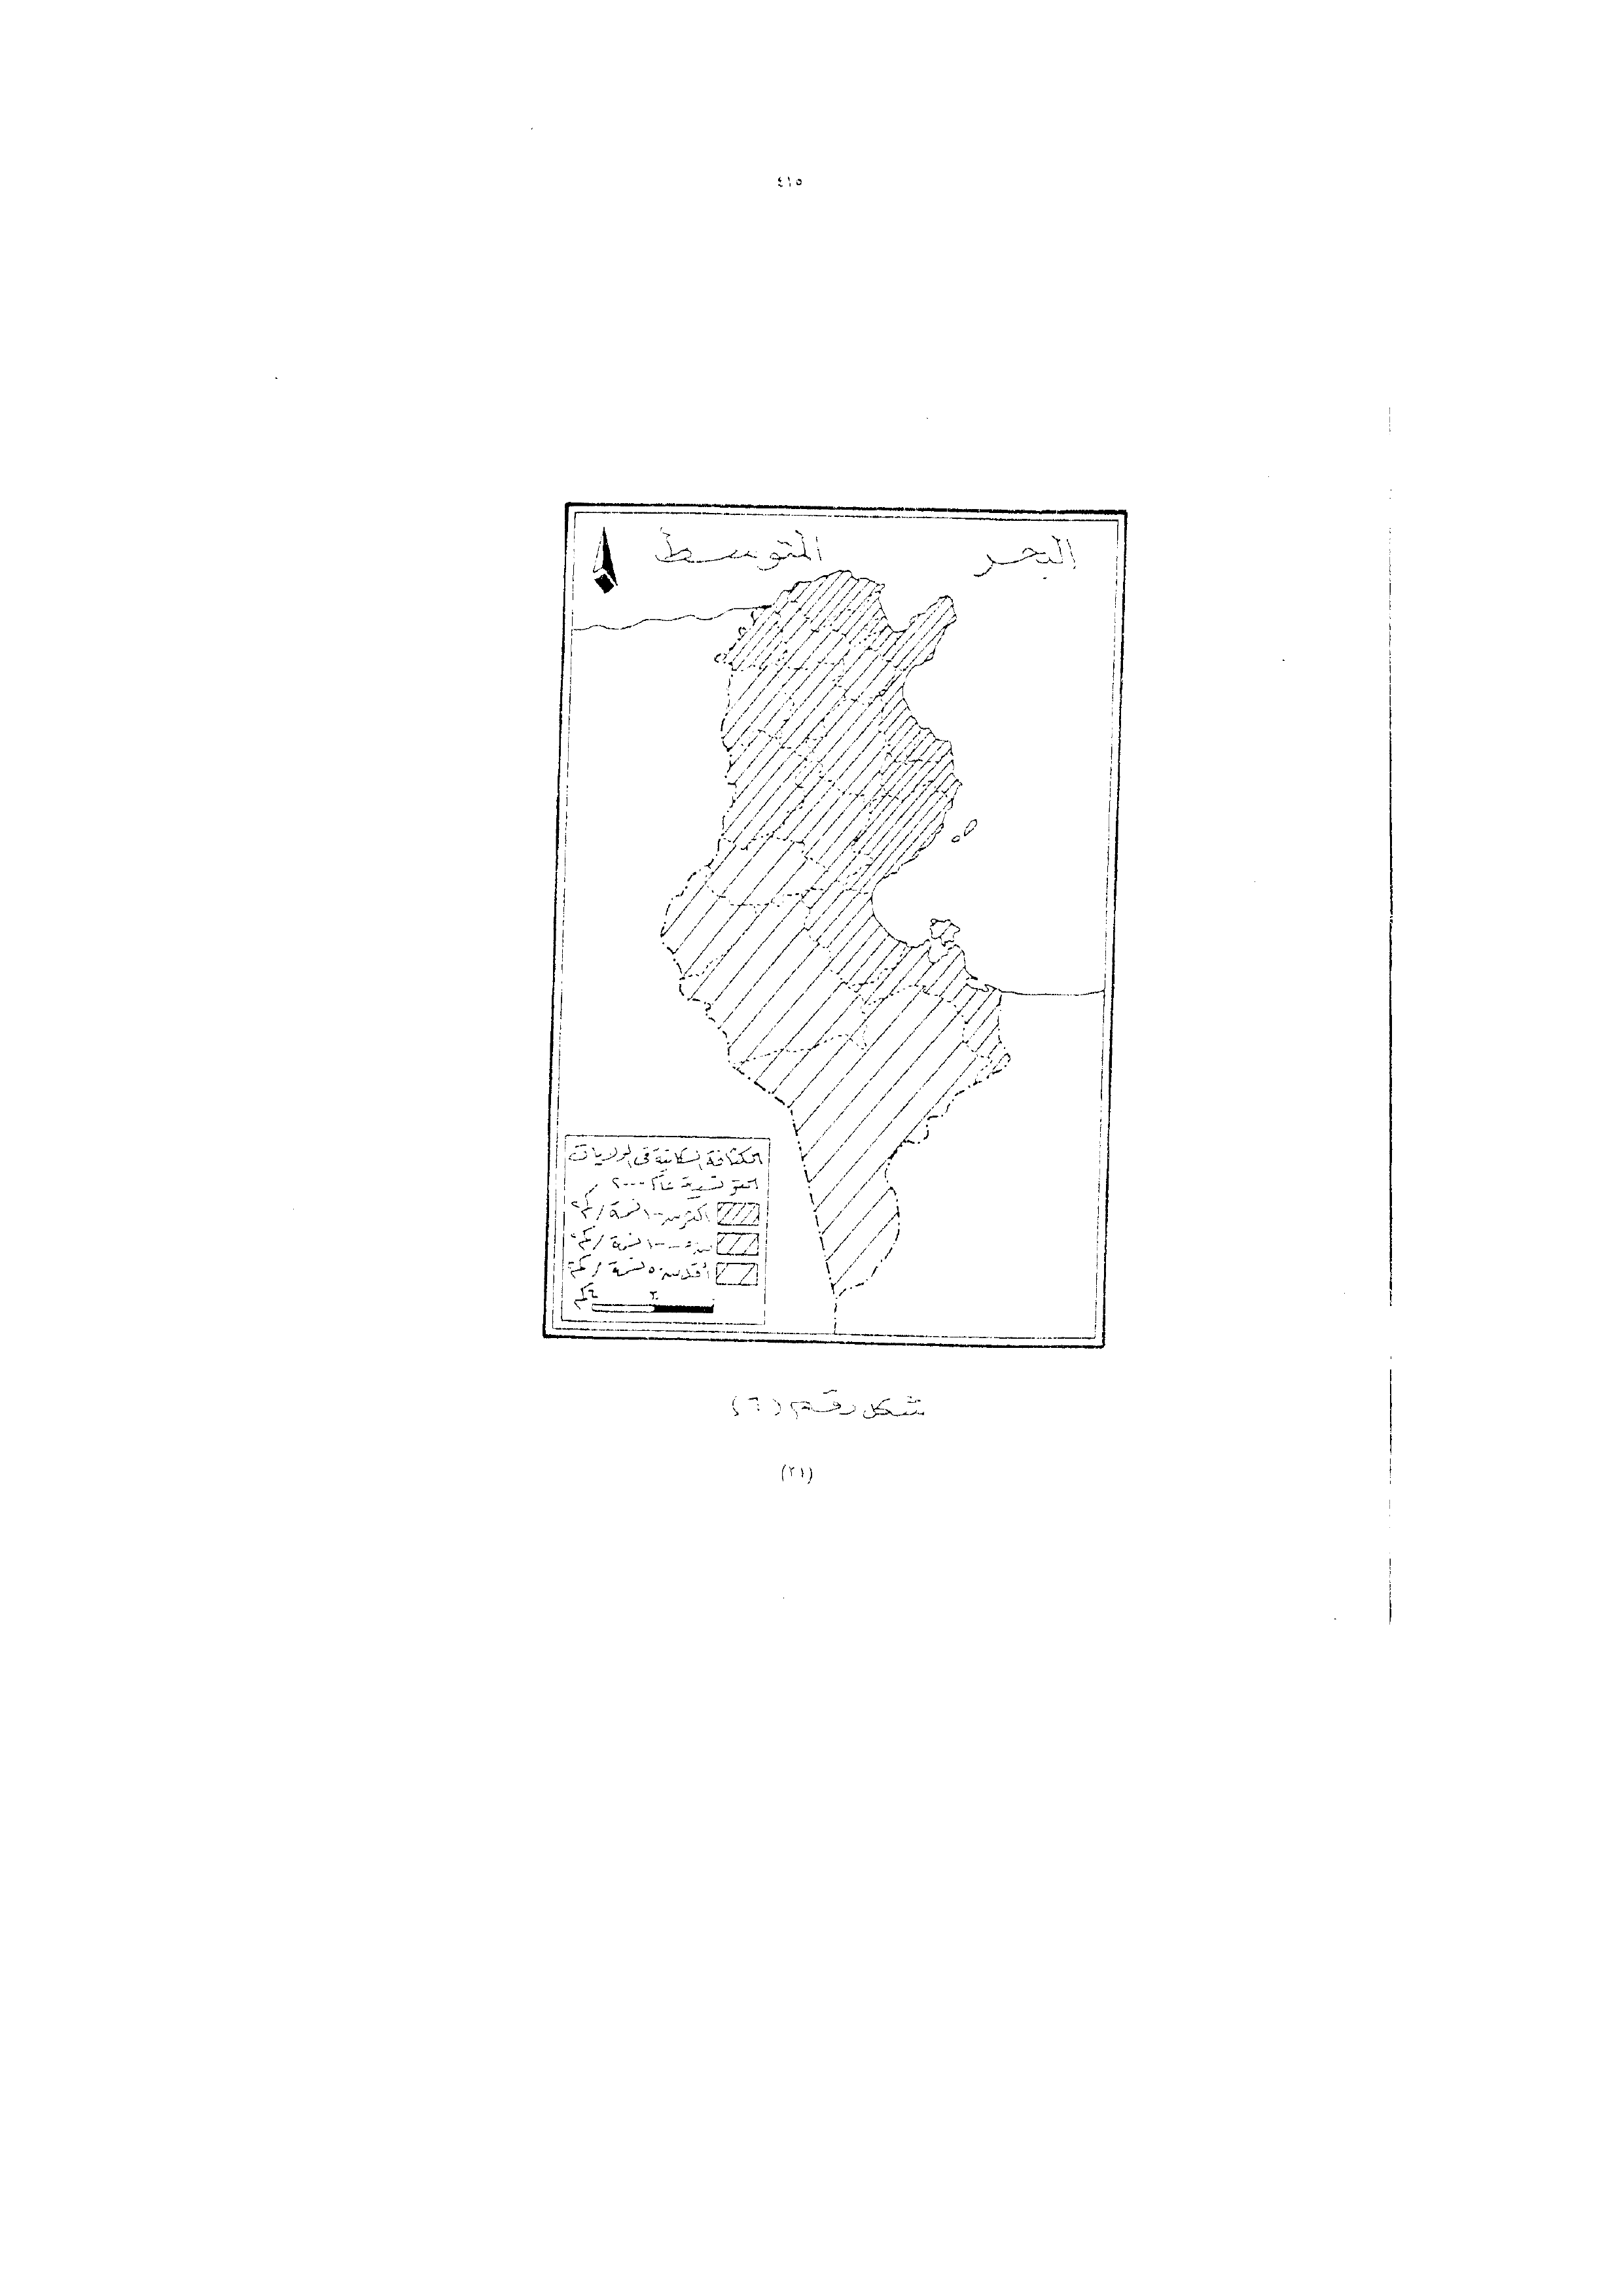 ٤١٥
البحر المتوسط
الكثافة السكانية فى الولايات
التونسية عام ٢٠٠٠
أكثر من ١٠٠ نسمة / كم٢
من ٥٠ - ١٠٠ نسمة / كم٢
أقل من ٥٠ نسمة / كم٢
كم
شكل رقم (٦)
(٢١)